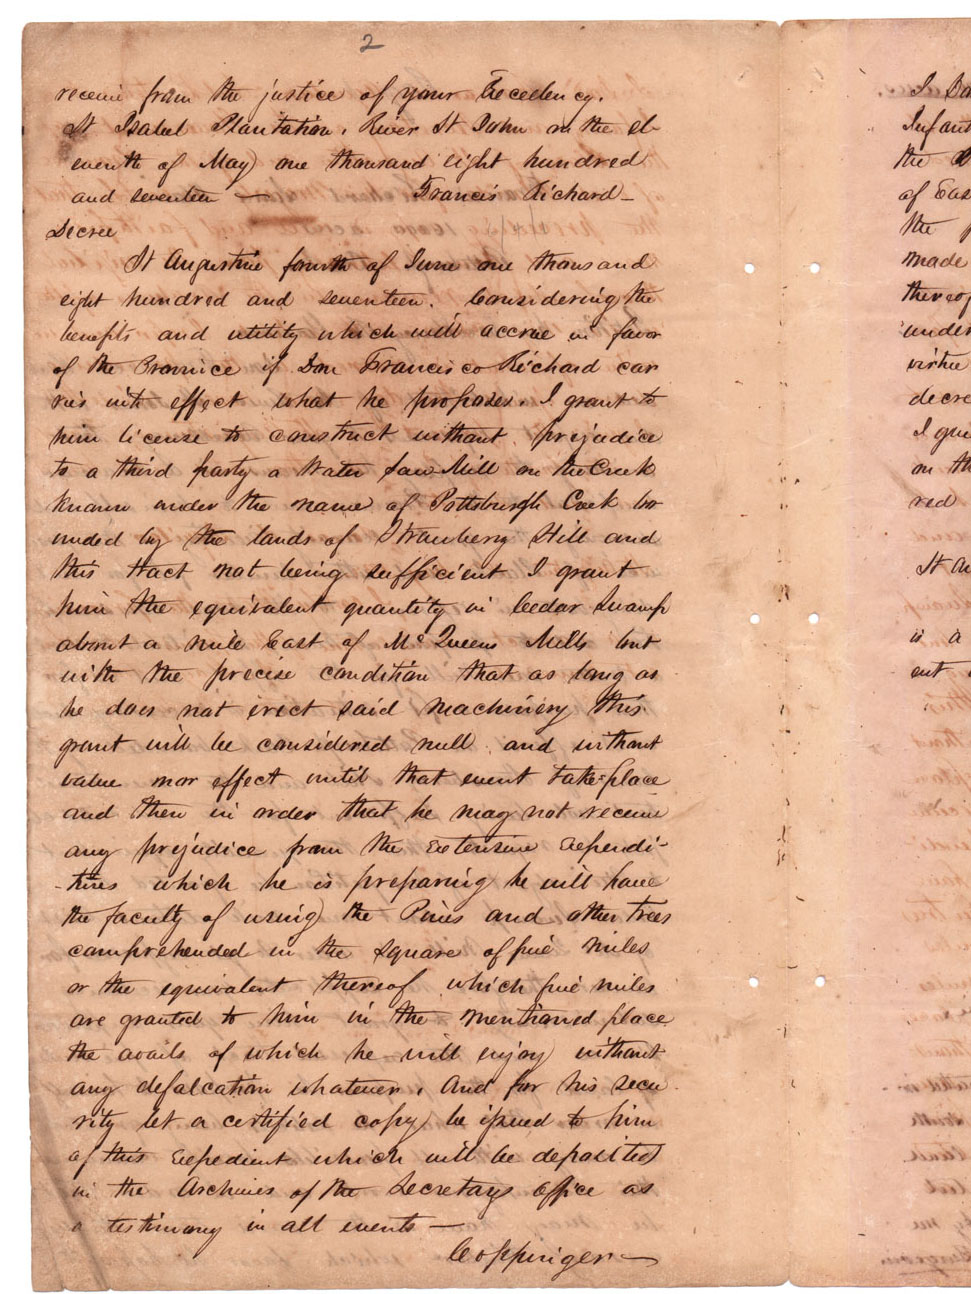 2
receive from the justice of your Excellency.
St Isabel Plantation, River St John on the el-
eventh of May one thousand eight hundred
and seventeen — Francis Richard —
Decree
St Augustine fourth of June one thousand
eight hundred and seventeen. Considering the
benefits and utility which will accrue in favor
of the Province if Don Francisco Richard car
ries into effect what he proposes. I grant to
him license to construct without prejudice
to a third party a Water Saw Mill on the Creek
known under the name of Pottsburgh Creek bo
unded by the lands of Strawberry Hill and
this tract not being sufficient I grant
him the equivalent quantity in Cedar Swamp
about a mile East of McQueens Mills but
with the precise condition that as long as
he does not erect said machinery this
grant will be considered null and without
value nor effect until that event take place
and then in order that he may not receive
any prejudice from the extensive expendi-
-tures which he is preparing he will have
the faculty of using the Pines and other trees
comprehended in the square of five miles
or the equivalent thereof which five miles
are granted to him in the mentioned place
the avails of which he will enjoy without
any defalcation whatever. And for his secu
rity let a certified copy be issued to him
of this expedient which will be deposited
in the Archives of the Secretays office as
a testimony in all events —
Coppinger —
I Do
Infant
the
of Eas
the
made
thereof
under
virtue
decre
I gra
on th
red
St Au
is a
ent